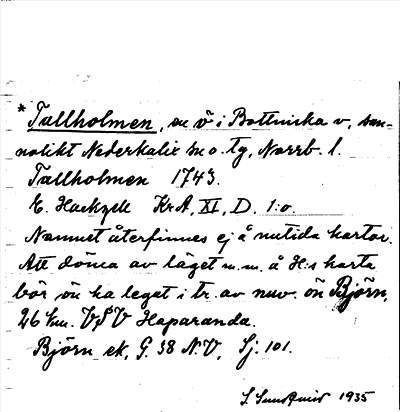 * Tallholmen, en ö i Bottniska v., san-
nolikt Nederkalix sn o. tg, Norrb. l.
Tallholmen 1743.
E. Hackzell KrA, XI, D. 1:o.
Namnet återfinnes ej å nutida kartor.
Att döma av läget m.m. å H:s karta
bör ön ha legat i tr. av nuv. ön Björn,
26 km. VSV Haparanda.
Björn ek. G. 38 N.V, Sj. 101.
S. Sundquist 1935